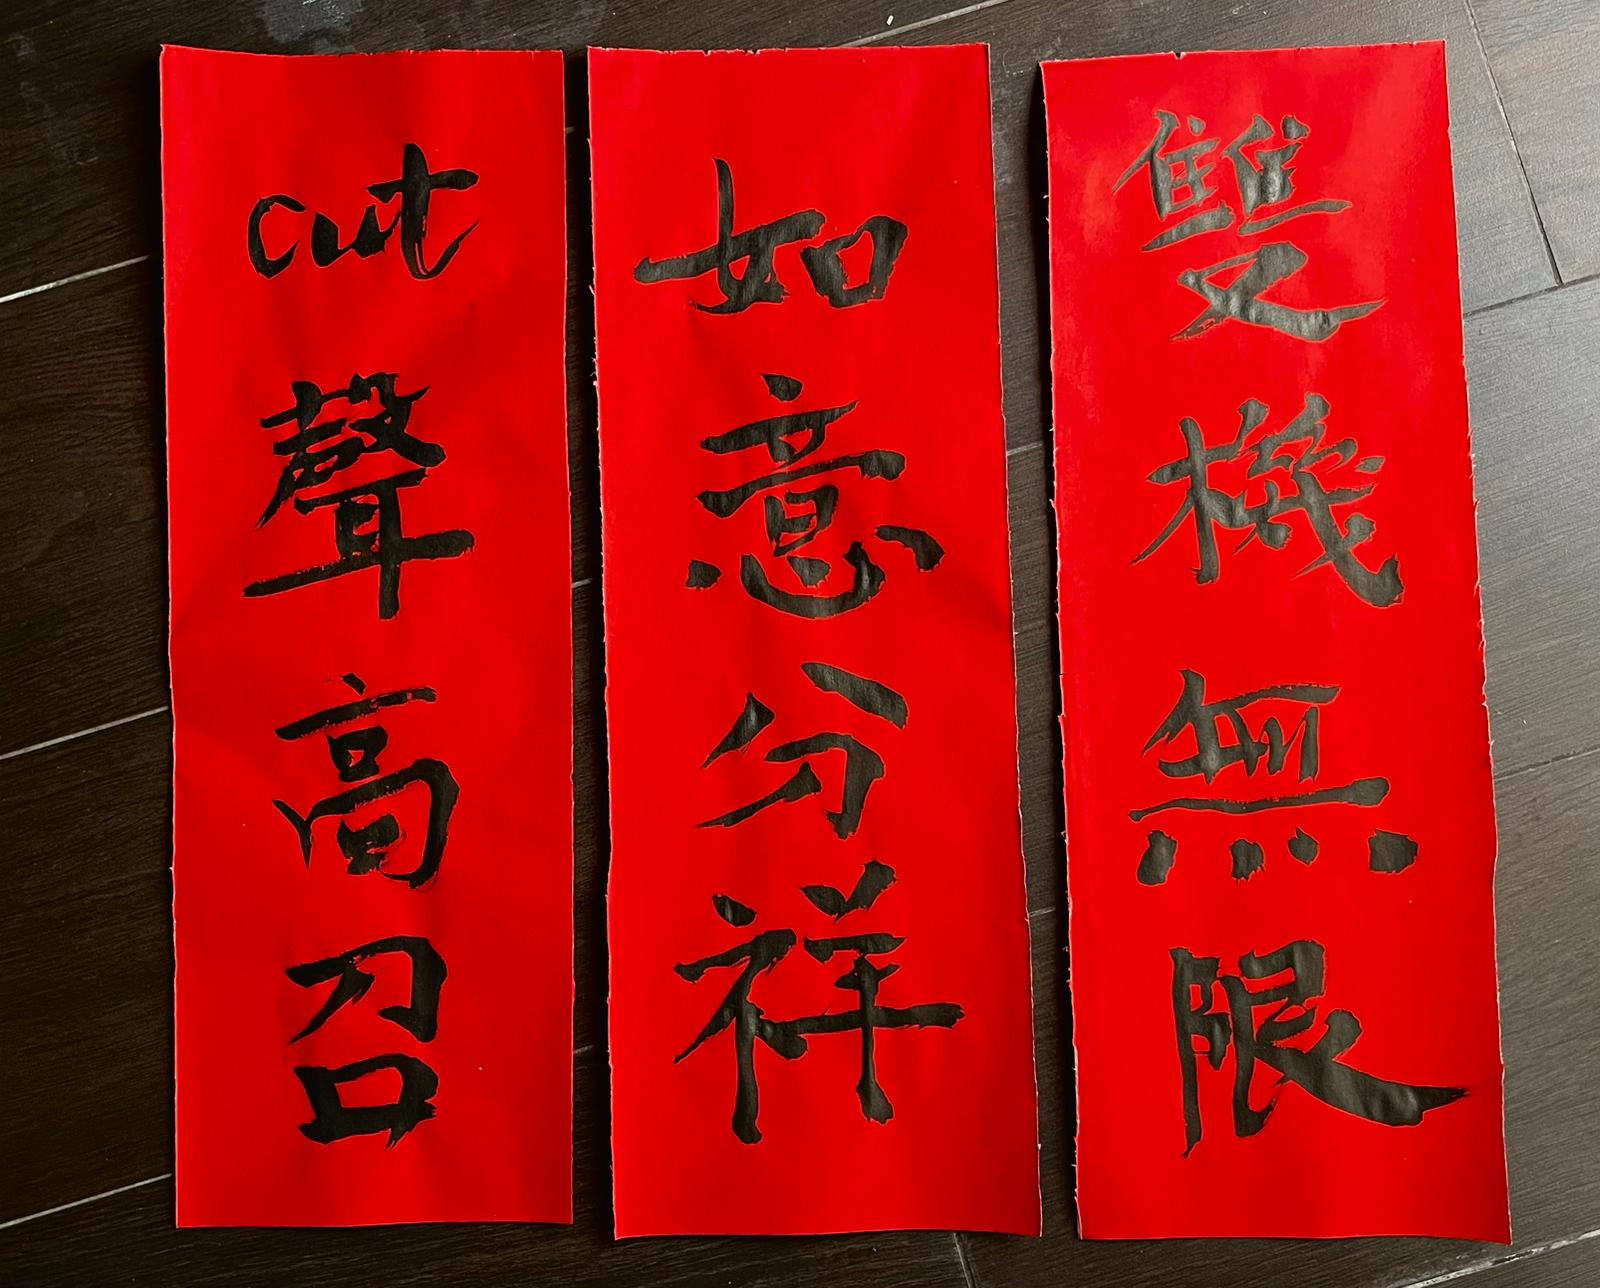 雙機無限
如意分祥
cut聲高召